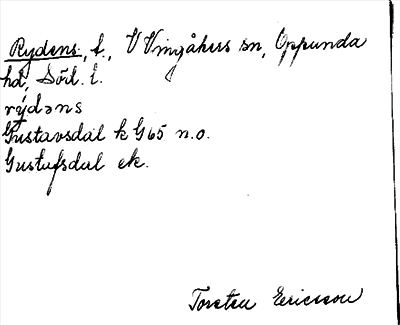 Rydens, t., V Vingåkers sn, Oppunda
hd, Södl. l.
rýdəns
Gustavsdal k G65 n.o.
Gustafsdal ek.
Torsten Ericsson